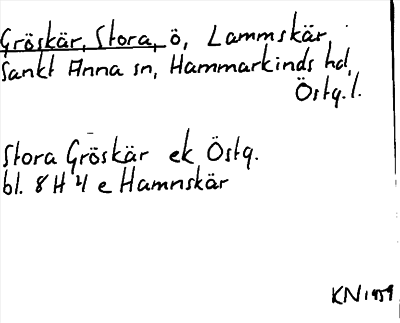 Gröskär, Stora, ö, Lammskär
Sankt Anna sn, Hammarkinds hd,
Östg.l.
Stora Gröskär ek Östg.
bl. 8 H 4 e Hamnskär
KN 1959